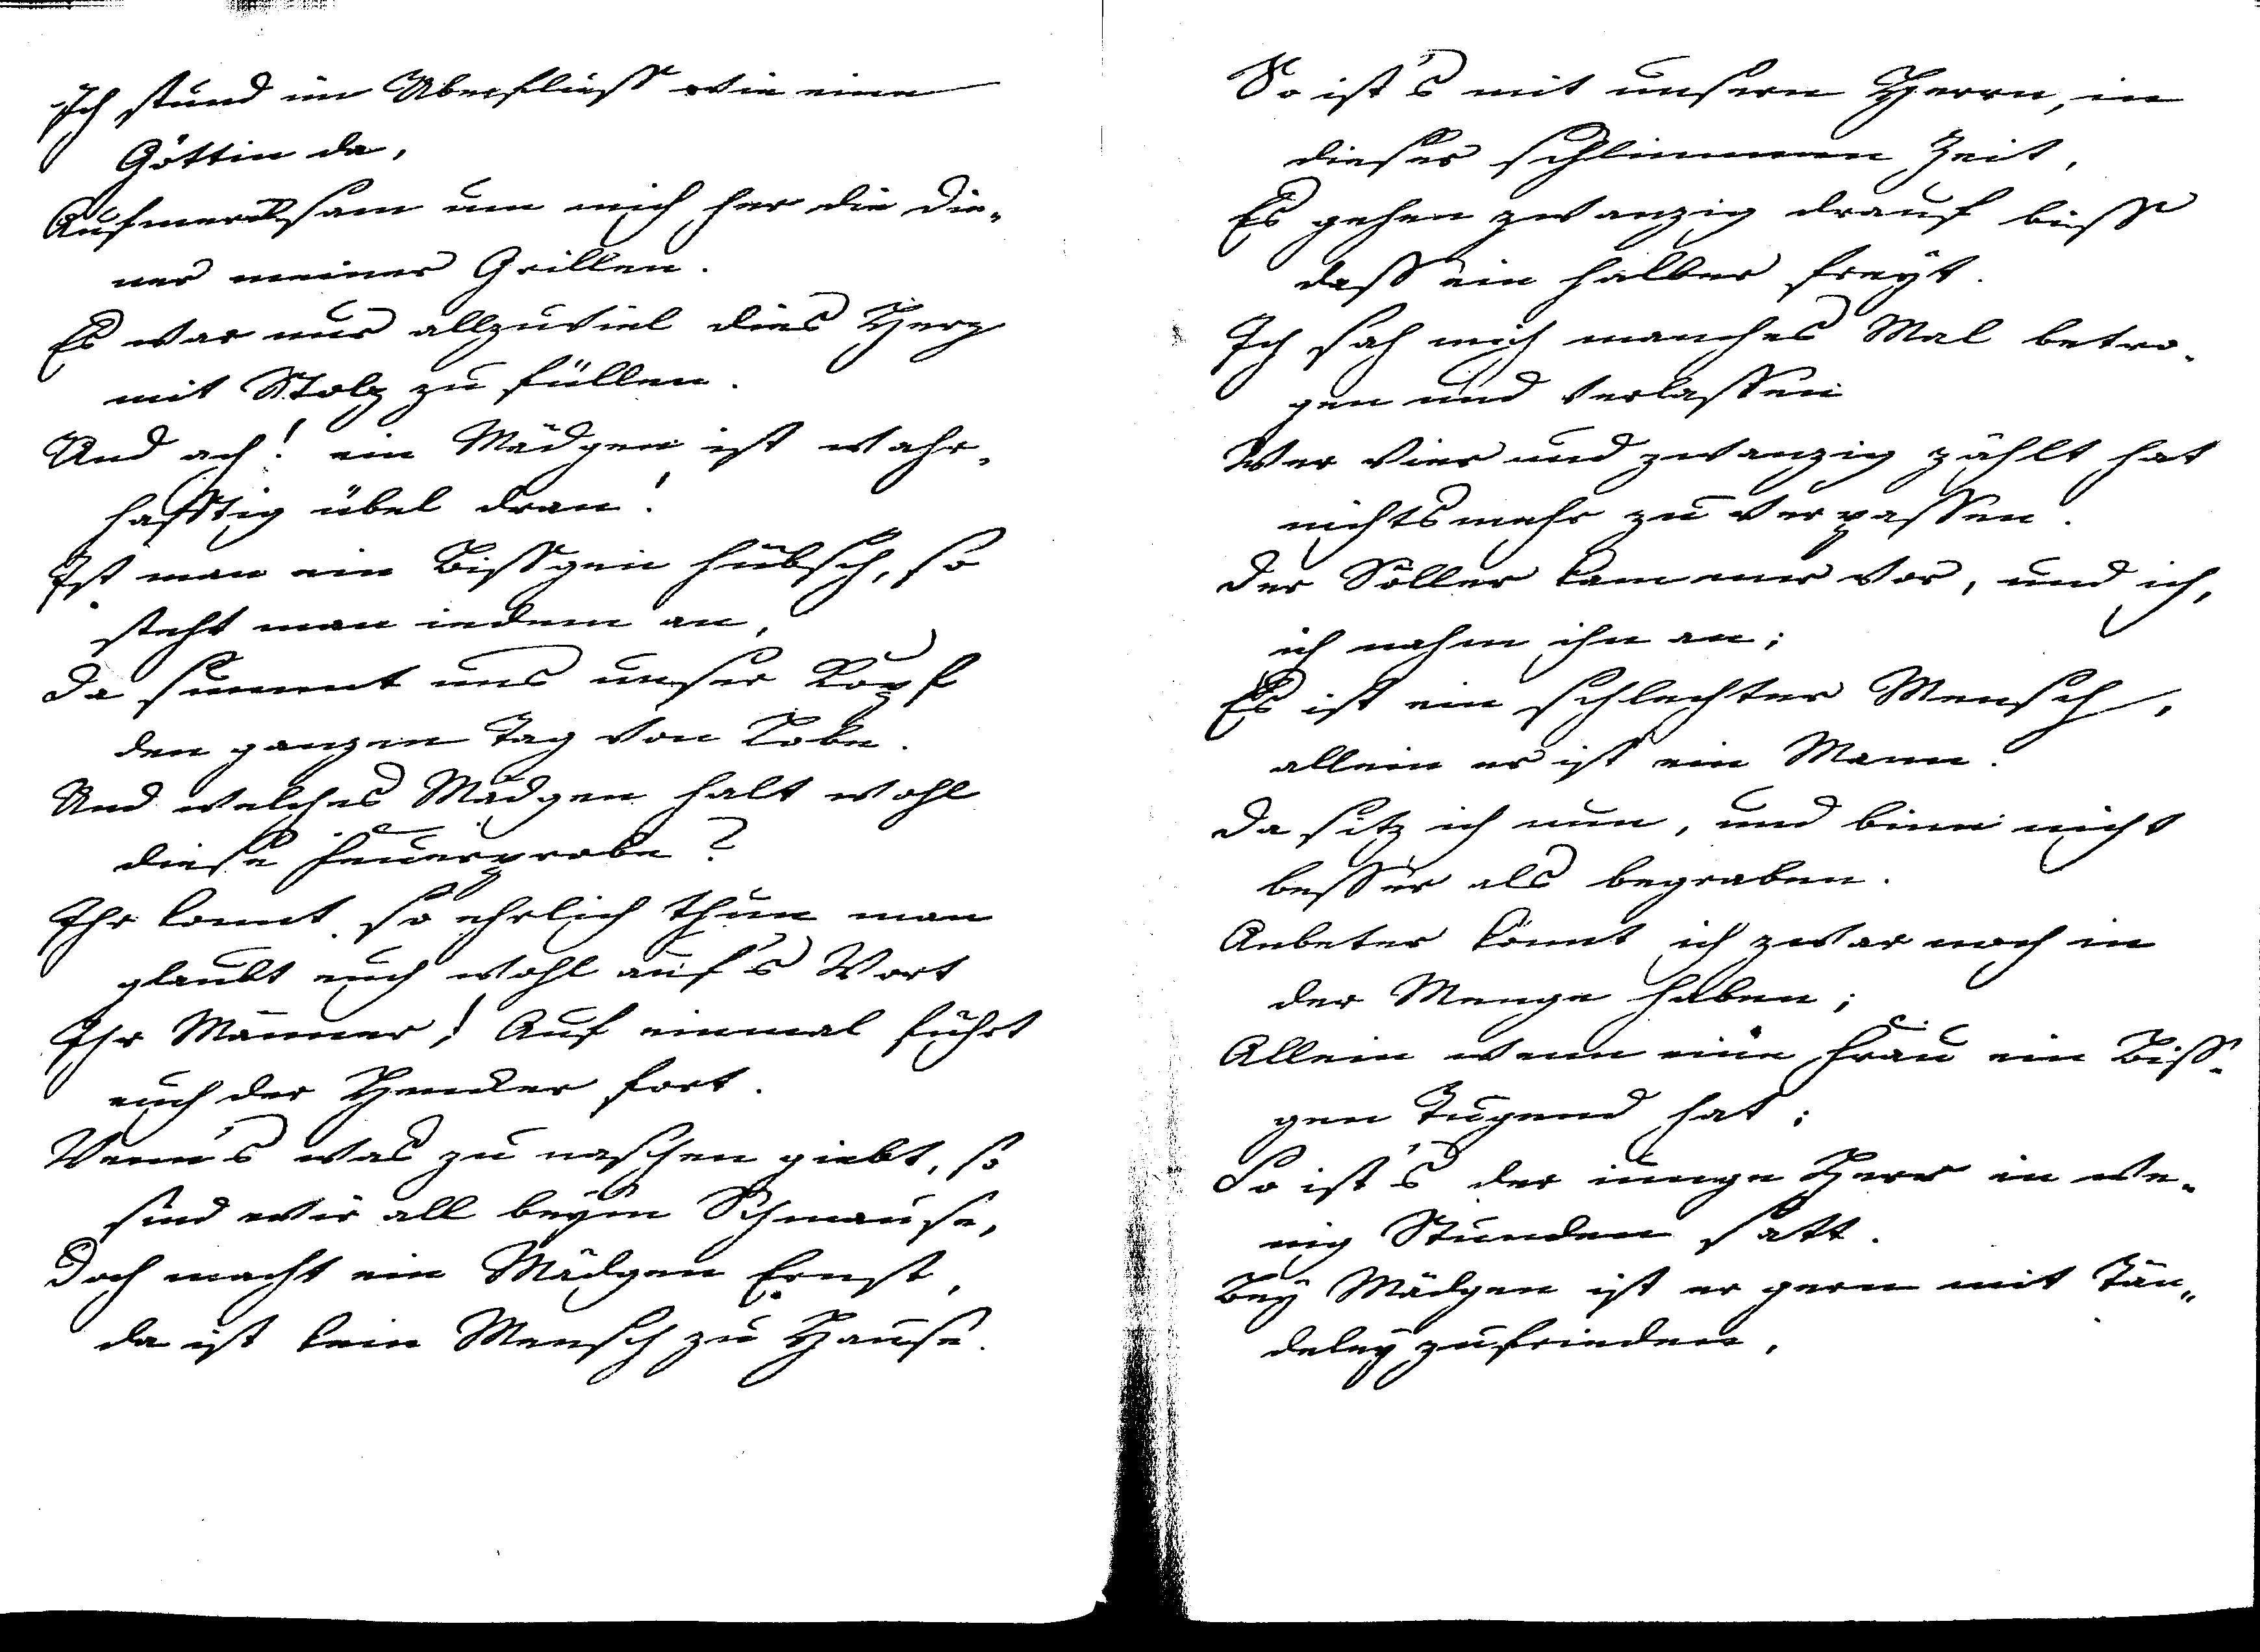 Ich stund im Uberfluss wie eine
Göttin da,
Aufmercksam um mich her die Die-
ner meiner Grillen.
Es war nur allzuviel dies Herz
mit Stolz zu füllen.
Und ach! ein Mädgen ist wahr-
hafftig übel dran!
Ist man ein Bissgen hübsch, so
steht man iedem an,
Da summt uns unser Kopf
den ganzen Tag von Lobe.
Und welches Mädgen hält wohl
diese Feuerprobe?
Ihr könnt so ehrlich thun man
glaubt euch wohl auf's Wort
Ihr Männer! Auf einmal führt
euch der Hencker fort.
Wenn's was zu naschen giebt, so
sind wir all beym Schmause,
Doch macht ein Mädgen Ernst,
da ist kein Mensch zu Hause.
So ist's mit unsern Herrn, in
dieser schlimmen Zeit,
Es gehen zwanzig drauf biss
dass ein halber freyt.
Ich sah mich manches Mal betro-
gen und verlassen
Wer vier und zwanzig zählt hat
nichts mehr zu verpassen.
Der Söller kam mir vor, und ich,
ich nahm ihn an;
Es ist ein schlechter Mensch,
allein er ist ein Mann.
Da sitz ich nun, und binn nicht
besser als begraben.
Anbeter könnt ich zwar noch in
der Menge haben;
Allein wenn eine Frau ein Biss-
gen Tugend hat;
So ist's der iunge Herr in we-
nig Stunden satt.
Bey Mädgen ist er gern mit Tän-
deley zufrieden,